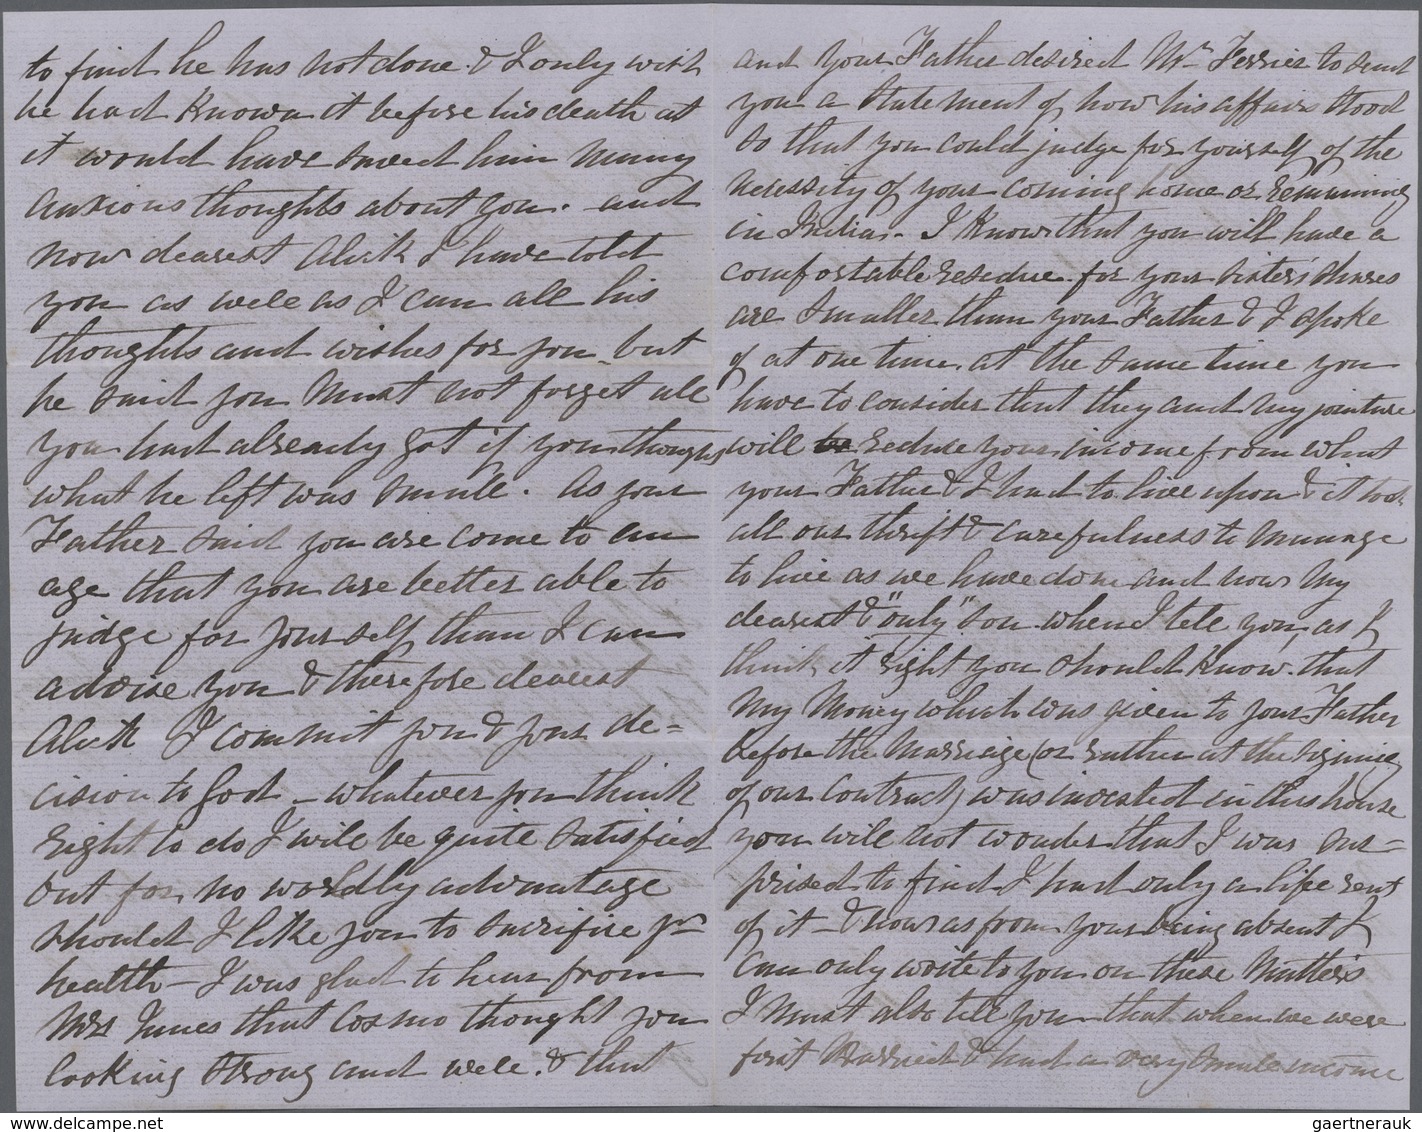 to find he has not done. & I only wish
he had known it before his death as
it would have saved him many
anxious thoughts about you. and
now dearest Alick I have told
you as well as I can all his
thoughts and wishes for you but
he said you must not forget all
you had already got if you thought
what he left was small. As your
Father said you are come to an
age that you are better able to
judge for yourself than I can
advise you & therefore dearest
Alick I commit you & your de=
cision to God – whatever you think
right to do I will be quite satisfied
but for no worldly advantage
should I like you to sacrifice yr
health – I was glad to hear from
Mrs Innes that Cosmo thought you
looking strong and well. & that
and your Father desired Mr Ferrier to send
you a statement of how his affairs stood
so that you could judge for yourself of the
necessity of your coming home or remaining
in India. – I know that you will have a
comfortable residue for your sisters shares
are smaller than your Father & I spoke
of at one time. at the same time you
have to consider that they and my jointure
will reduce your income from what
your Father & I had to live upon & it took
all our thrift & carefulness to manage
to live as we have done and now my
dearest & "only" son when I tell you, as I
think it right you should know. that
my money which was given to your Father
before the marriage (or rather at the signing
of our contract) was invested in this house
you will not wonder that I was sur=
prised to find I had only a life rent
of it – & now as from your being absent I
can only write to you on these matters
I must also tell you that when we were
first married & had a very small income
gaertnerauk